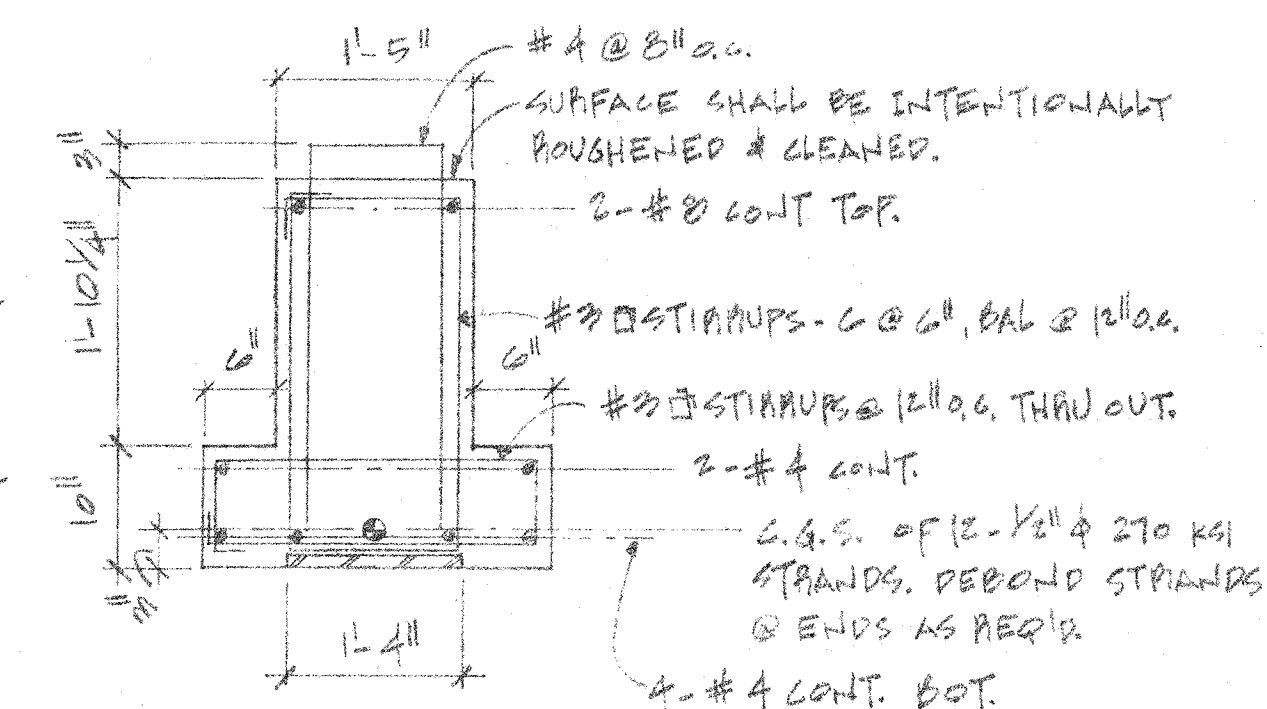 1'-5"
#4 @ 8" o.c.
SURFACE SHALL BE INTENTIONALLY
ROUGHENED & CLEANED.
3"
2-#8 CONT TOP.
1'-10 1/4"
#3 □ STIRRUPS - 6 @ 6", BAL @ 12" o.c.
6"
6"
#3 STIRRUPS @ 12" o.c. THRU OUT.
2-#4 CONT.
10"
C.G.S. OF 12-1/2" φ 270 KSI
STRANDS. DEBOND STRANDS
@ ENDS AS REQ'D.
3"
1'-4"
4-#4 CONT. BOT.